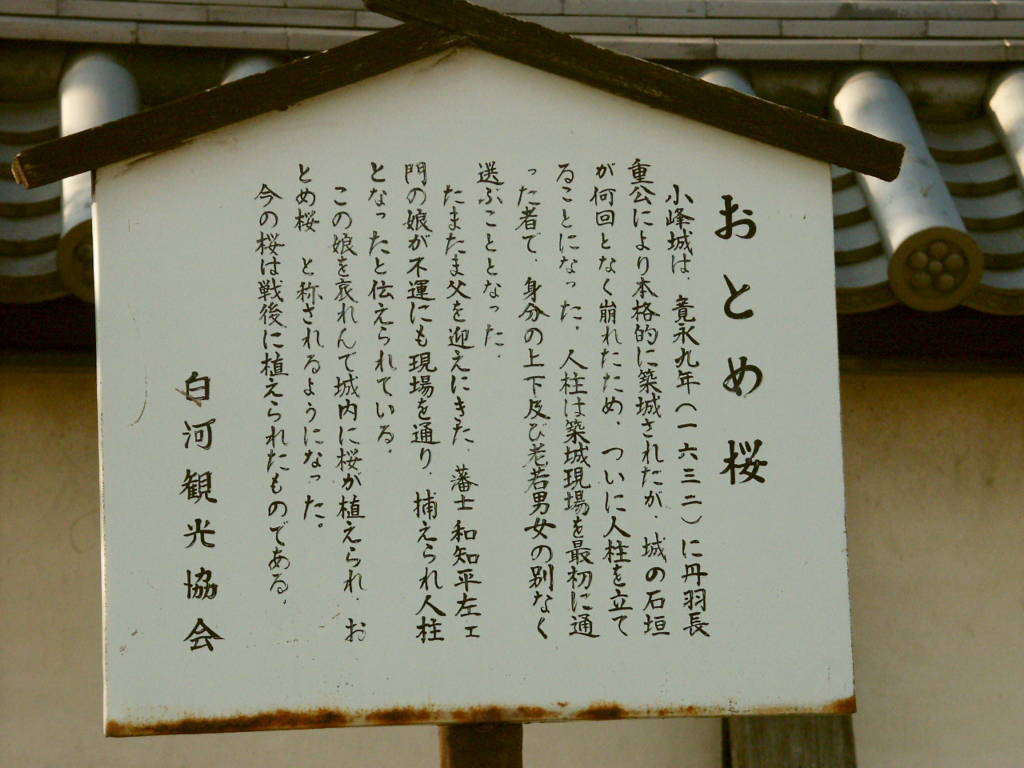 おとめ桜
小峰城は、寛永九年(一六三二)に丹羽長
重公により本格的に築城されだが、城の石垣
が何回となく崩れたため、ついに人柱を立て
ることになった。人柱は築城現場を最初に通
った者で、身分の上下及び老若男女の別なく
選ぶこととなった。
たまたま父を迎えにきた、藩士 和知平左ェ
門の娘が不運にも現場を通り、捕えられ人柱
となったと伝えられている。
この娘を哀れんで城内に桜が植えられ、お
とめ桜 と称されるようになった。
今の桜は戦後に植えられたものである。
白河観光協会